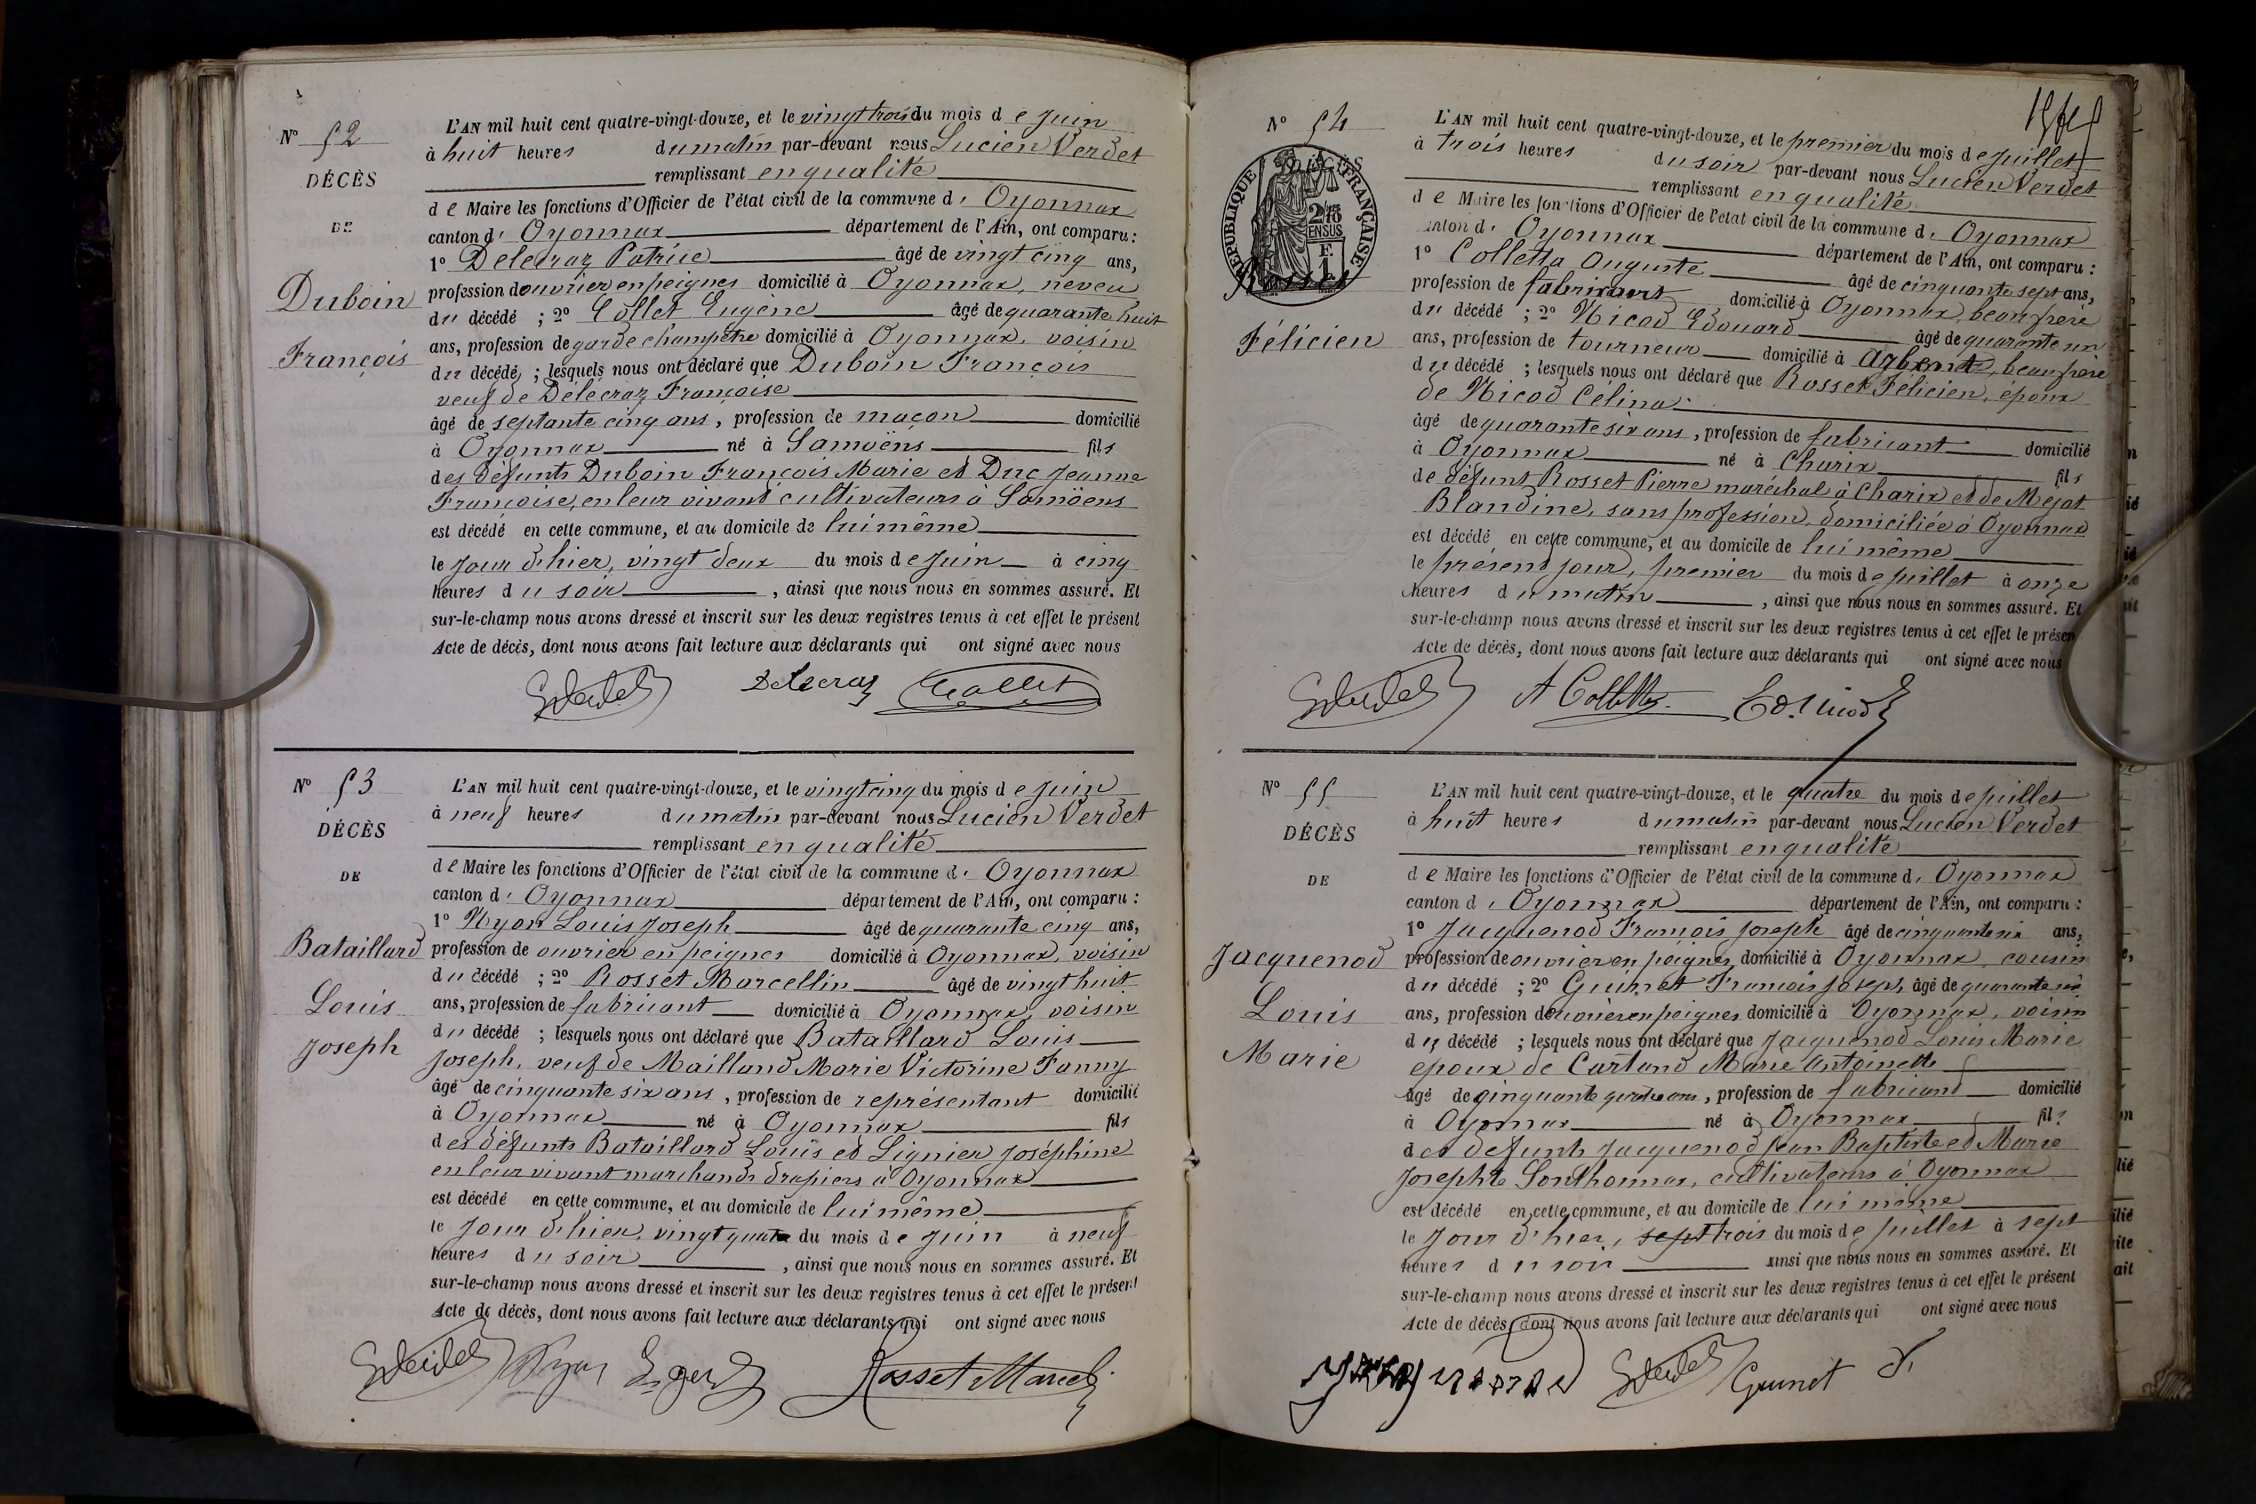 N° 52
DÉCÈS
DE
Duboin
François
L'AN mil huit cent quatre-vingt-douze, et le vingt trois du mois de Juin
à huit heures du matin par-devant nous Lucien Verdet
remplissant en qualité
de Maire les fonctions d'Officier de l'état civil de la commune d' Oyonnax
canton d' Oyonnax département de l'Ain, ont comparu :
1° Delécraz Patrice âgé de vingt cinq ans,
profession d'ouvrier en peignes domicilié à Oyonnax, neveu
du décédé ; 2° Collet Eugène âgé de quarante huit
ans, profession de garde champêtre domicilié à Oyonnax, voisin
du décédé ; lesquels nous ont déclaré que Duboin François
veuf de Délécraz Françoise
âgé de septante cinq ans, profession de maçon domicilié
à Oyonnax né à Samoëns fils
des défunts Duboin François Marie et Duc Jeanne
Françoise, en leur vivant cultivateurs à Samöens
est décédé en cette commune, et au domicile de lui même
le jour d'hier, vingt deux du mois de Juin à cinq
heures du soir, ainsi que nous nous en sommes assuré. Et
sur-le-champ nous avons dressé et inscrit sur les deux registres tenus à cet effet le présent
Acte de décès, dont nous avons fait lecture aux déclarants qui ont signé avec nous
Delecraz Collet
N° 53
DÉCÈS
DE
Bataillard
Louis
Joseph
L'AN mil huit cent quatre-vingt-douze, et le vingt cinq du mois de Juin
à neuf heures du matin par-devant nous Lucien Verdet
remplissant en qualité
de Maire les fonctions d'Officier de l'état civil de la commune d' Oyonnax
canton d' Oyonnax département de l'Ain, ont comparu :
1° Nyon Louis Joseph âgé de quarante cinq ans,
profession de ouvrier en peignes domicilié à Oyonnax, voisin
du décédé ; 2° Rosset Marcellin âgé de vingt huit
ans, profession de fabricant domicilié à Oyonnax, voisin
du décédé ; lesquels nous ont déclaré que Bataillard Louis
Joseph, veuf de Mailland Marie Victorine Fanny
âgé de cinquante six ans, profession de représentant domicilié
à Oyonnax né à Oyonnax fils
des défunts Bataillard Louis et Lignier Joséphine
en leur vivant marchands drapiers à Oyonnax
est décédé en cette commune, et au domicile de lui même
le jour d'hier, vingt quatre du mois de Juin à neuf
heures du soir, ainsi que nous nous en sommes assuré. Et
sur-le-champ nous avons dressé et inscrit sur les deux registres tenus à cet effet le présent
Acte de décès, dont nous avons fait lecture aux déclarants qui ont signé avec nous
Rosset Marcel
N° 54
DÉCÈS
RÉPUBLIQUE FRANÇAISE
Rosset
Félicien
L'AN mil huit cent quatre-vingt-douze, et le premier du mois de Juillet
à trois heures du soir par-devant nous Lucien Verdet
remplissant en qualité
de Maire les fonctions d'Officier de l'état civil de la commune d' Oyonnax
canton d' Oyonnax département de l'Ain, ont comparu :
1° Colletta Auguste âgé de cinquante sept ans,
profession de fabricant domicilié à Oyonnax, beau frère
du décédé ; 2° Nicod Edouard âgé de quarante un
ans, profession de tourneur domicilié à Arbent, beau frère
du décédé ; lesquels nous ont déclaré que Rosset Félicien, époux
de Nicod Célina
âgé de quarante six ans, profession de fabricant domicilié
à Oyonnax né à Charix fils
de défunt Rosset Pierre maréchal à Charix et de Mejat
Blandine, sans profession, domiciliée à Oyonnax
est décédé en cette commune, et au domicile de lui même
le présent jour, premier du mois de Juillet à onze
heures du matin, ainsi que nous nous en sommes assuré. Et
sur-le-champ nous avons dressé et inscrit sur les deux registres tenus à cet effet le présen
Acte de décès, dont nous avons fait lecture aux déclarants qui ont signé avec nous
A Colletta Ed. Nicod
N° 55
DÉCÈS
DE
Jacquenod
Louis
Marie
L'AN mil huit cent quatre-vingt-douze, et le quatre du mois de Juillet
à huit heures du matin par-devant nous Lucien Verdet
remplissant en qualité
de Maire les fonctions d'Officier de l'état civil de la commune d' Oyonnax
canton d' Oyonnax département de l'Ain, ont comparu :
1° Jacquenod François Joseph âgé de cinquante six ans,
profession de ouvrier en peignes domicilié à Oyonnax, cousin
du décédé ; 2° Guinet François Joseph âgé de quarante six
ans, profession d'ouvrier en peignes domicilié à Oyonnax, voisin
du décédé ; lesquels nous ont déclaré que Jacquenod Louis Marie
époux de Cartand Marie Antoinette
âgé de cinquante quatre ans, profession de fabricant domicilié
à Oyonnax né à Oyonnax fils
des défunts Jacquenod Jean Baptiste et Marie
Josephte Sonthonnax, cultivateurs à Oyonnax
est décédé en cette commune, et au domicile de lui même
le jour d'hier, sept trois du mois de Juillet à sept
heures du soir ainsi que nous nous en sommes assuré. Et
sur-le-champ nous avons dressé et inscrit sur les deux registres tenus à cet effet le présent
Acte de décès, dont nous avons fait lecture aux déclarants qui ont signé avec nous
Guinet